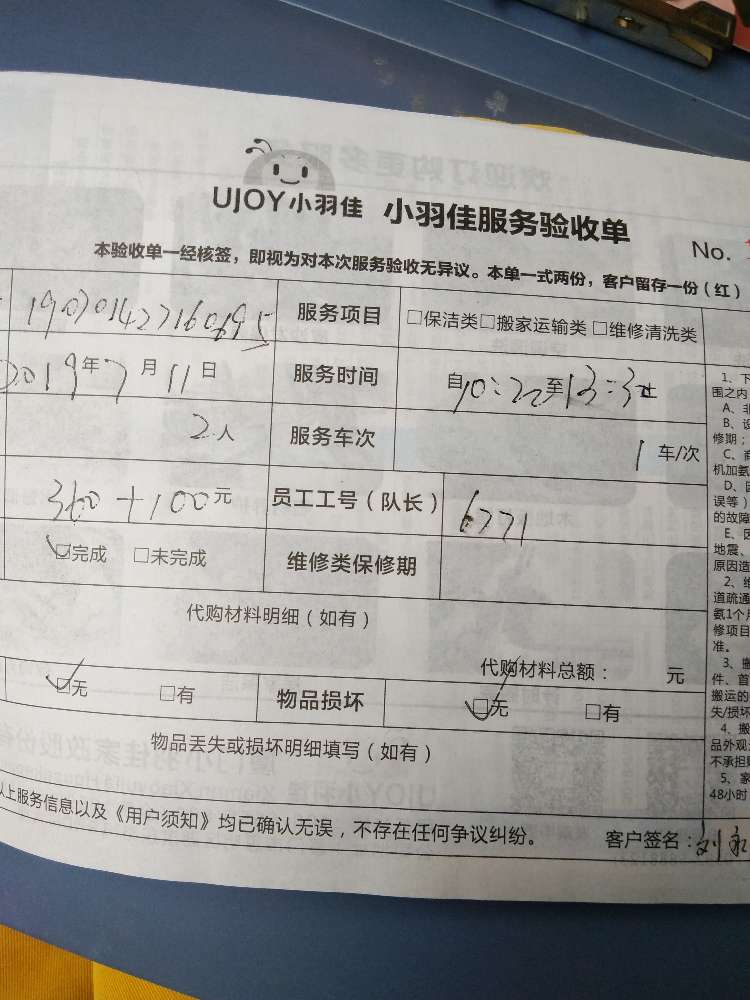 UJOY小羽佳 小羽佳服务验收单
No.
本验收单一经核签，即视为对本次服务验收无异议。本单一式两份，客户留存一份（红）
服务项目 □保洁类□搬家运输类 □维修清洗类
2019年7月11日 服务时间 自10:22至13:32
2人 服务车次 1车/次
360+100元 员工工号（队长） 6771
☑完成 □未完成 维修类保修期
代购材料明细（如有）
代购材料总额： 元
☑无 □有 物品损坏 ☑无 □有
物品丢失或损坏明细填写（如有）
以上服务信息以及《用户须知》均已确认无误，不存在任何争议纠纷。 客户签名：刘
1、下
围之内
A、非
B、设
修期；
C、商
机加氨
D、因
误等）
的故障
E、因
地震、
原因造
2、维
道疏通
氨1个月
修项目
准。
3、搬
件、首
搬运的
失/损坏
4、搬
品外观
不承担
5、家
48小时